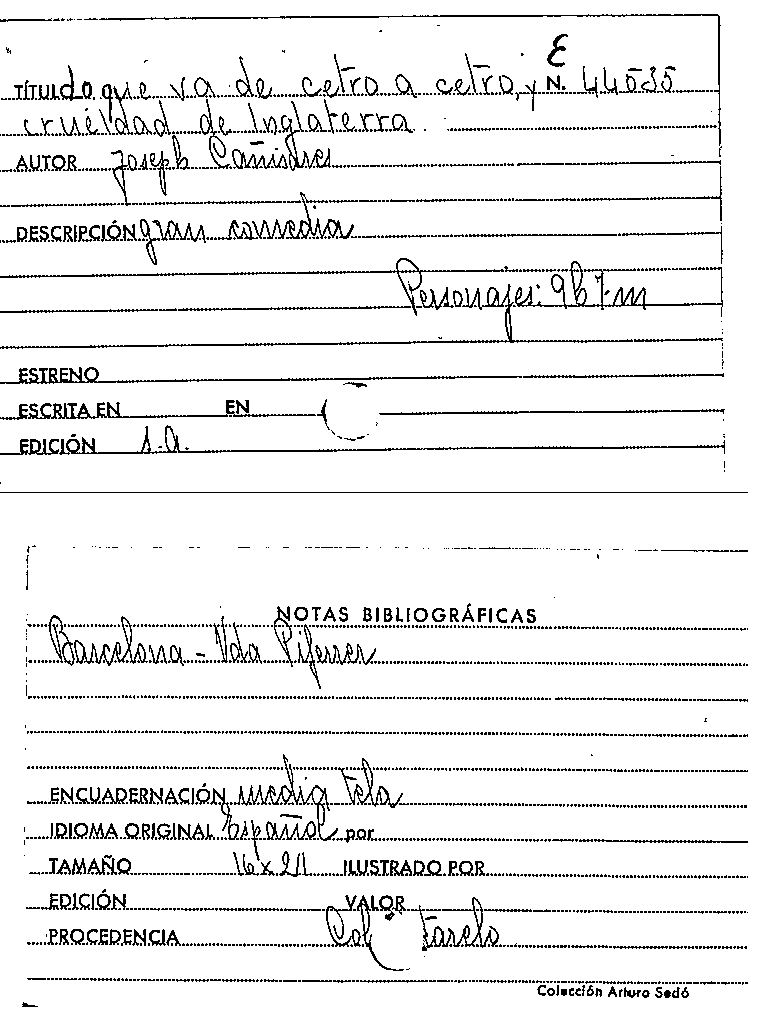 E
TÍTULO Lo que va de cetro a cetro, y N. 44535
crueldad de Inglaterra.
AUTOR Joseph Cañisares
DESCRIPCIÓN gran comedia
Personajes: 9h 7m
ESTRENO
ESCRITA EN EN
EDICIÓN s.a.
NOTAS BIBLIOGRÁFICAS
Barcelona - Vda Piferrer
ENCUADERNACIÓN media tela
IDIOMA ORIGINAL Español por
TAMAÑO 16 x 21 ILUSTRADO POR
EDICIÓN VALOR
PROCEDENCIA Col.
Colección Arturo Sedó